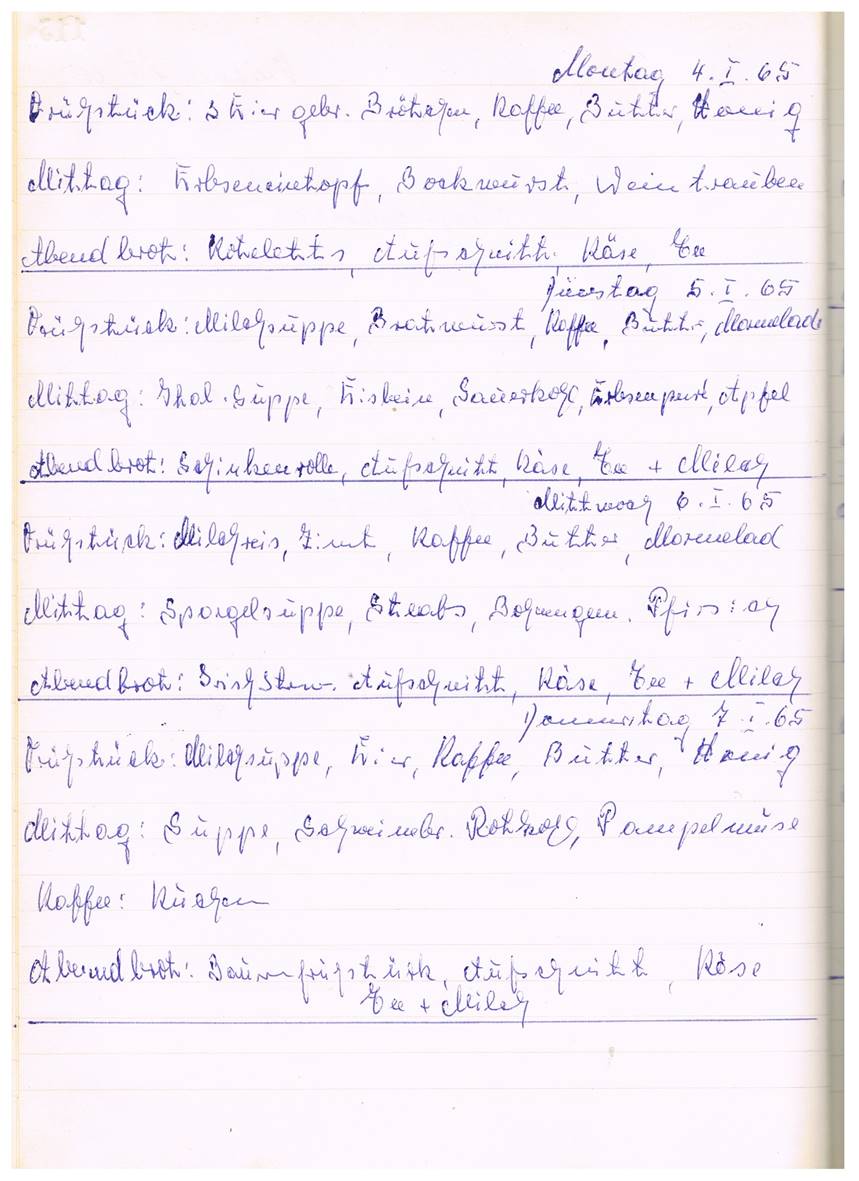 Montag 4.I.65
Frühstück: 3 Eier gebr. Brötchen, Kaffee, Butter, Honig
Mittag: Erbseneintopf, Bockwurst, Weintrauben
Abendbrot: Koteletts, Aufschnitt, Käse, Tee
Dienstag 5.I.65
Frühstück: Milchsuppe, Bratwurst, Kaffee, Butter, Marmelad
Mittag: Suppe, Eisbein, Sauerkohl, Erbsenpure, Apfel
Abendbrot: Schinkenrolle, Aufschnitt, Käse, Tee + Milch
Mittwoch 6.I.65
Frühstück: Milchreis, Zimt, Kaffee, Butter, Marmelad
Mittag: Spargelsuppe, Steaks, Bohnengem. Pfirsich
Abendbrot: Aufschnitt, Käse, Tee + Milch
Donnerstag 7.I.65
Frühstück: Milchsuppe, Eier, Kaffee, Butter, Honig
Mittag: Suppe, Schweinebr. Rotkohl, Pampelmuse
Kaffee: Kuchen
Abendbrot: Bauernfrühstück, Aufschnitt, Käse
Tee + Milch